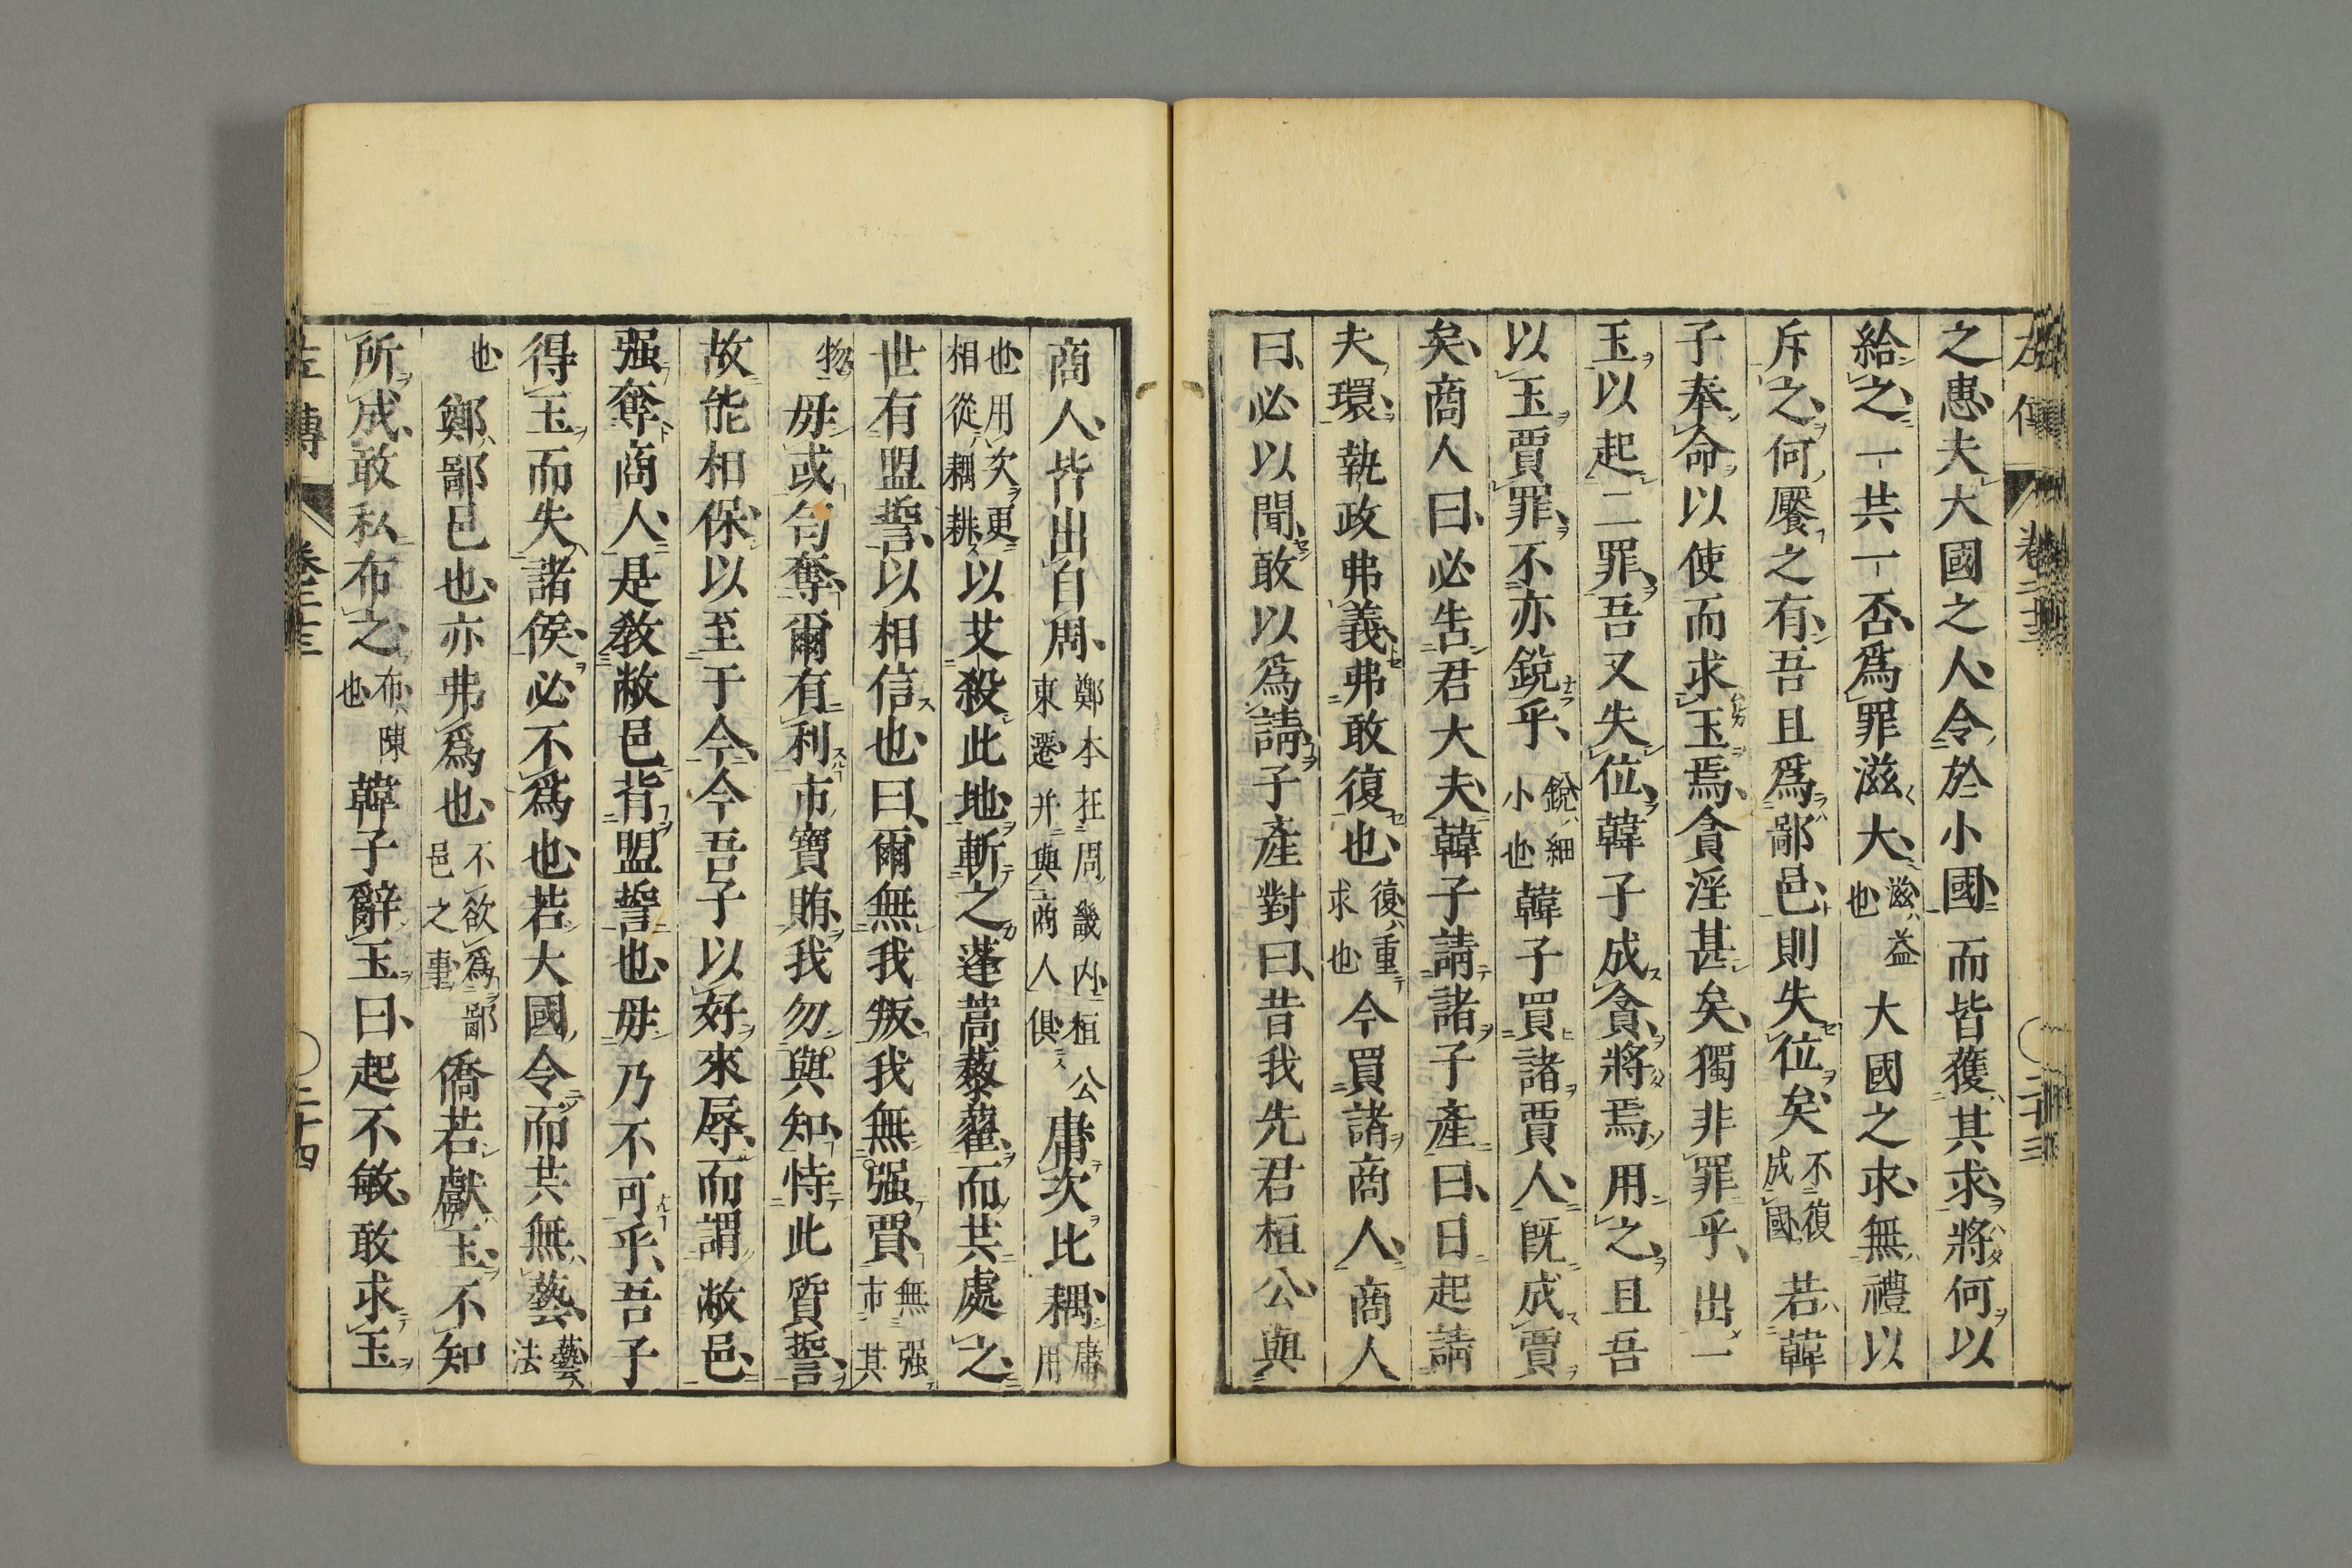 之患夫大國之人令於小國而皆獲其求將何以
給之一共一否爲罪滋大滋益也大國之求無禮以
斥之何饜之有吾且爲鄙邑則失位矣不復成國若韓
子奉命以使而求玉焉貪淫甚矣獨非罪乎出一
玉以起二罪吾又失位韓子成貪將焉用之且吾
以玉賈罪不亦鋭乎鋭細小也韓子買諸賈人既成賈
矣商人曰必告君大夫韓子請諸子產曰日起請
夫環執政弗義弗敢復也復重求也今買諸商人商人
曰必以聞敢以爲請子產對曰昔我先君桓公與
商人皆出自周鄭本在周畿内桓公東遷并與商人俱庸次比耦庸用
也用次更相從耦耕以艾殺此地斬之蓬蒿藜藋而共處之
世有盟誓以相信也曰爾無我叛我無强賈無强市其
物毋或匄奪爾有利市寶賄我勿與知恃此質誓
故能相保以至于今今吾子以好來辱而謂敝邑
强奪商人是敎敝邑背盟誓也毋乃不可乎吾子
得玉而失諸侯必不爲也若大國令而共無藝藝法
也鄭鄙邑也亦弗爲也不欲爲鄙邑之事僑若獻玉不知
所成敢私布之布陳也韓子辭玉曰起不敏敢求玉
左傳 卷二十三 〇二十四